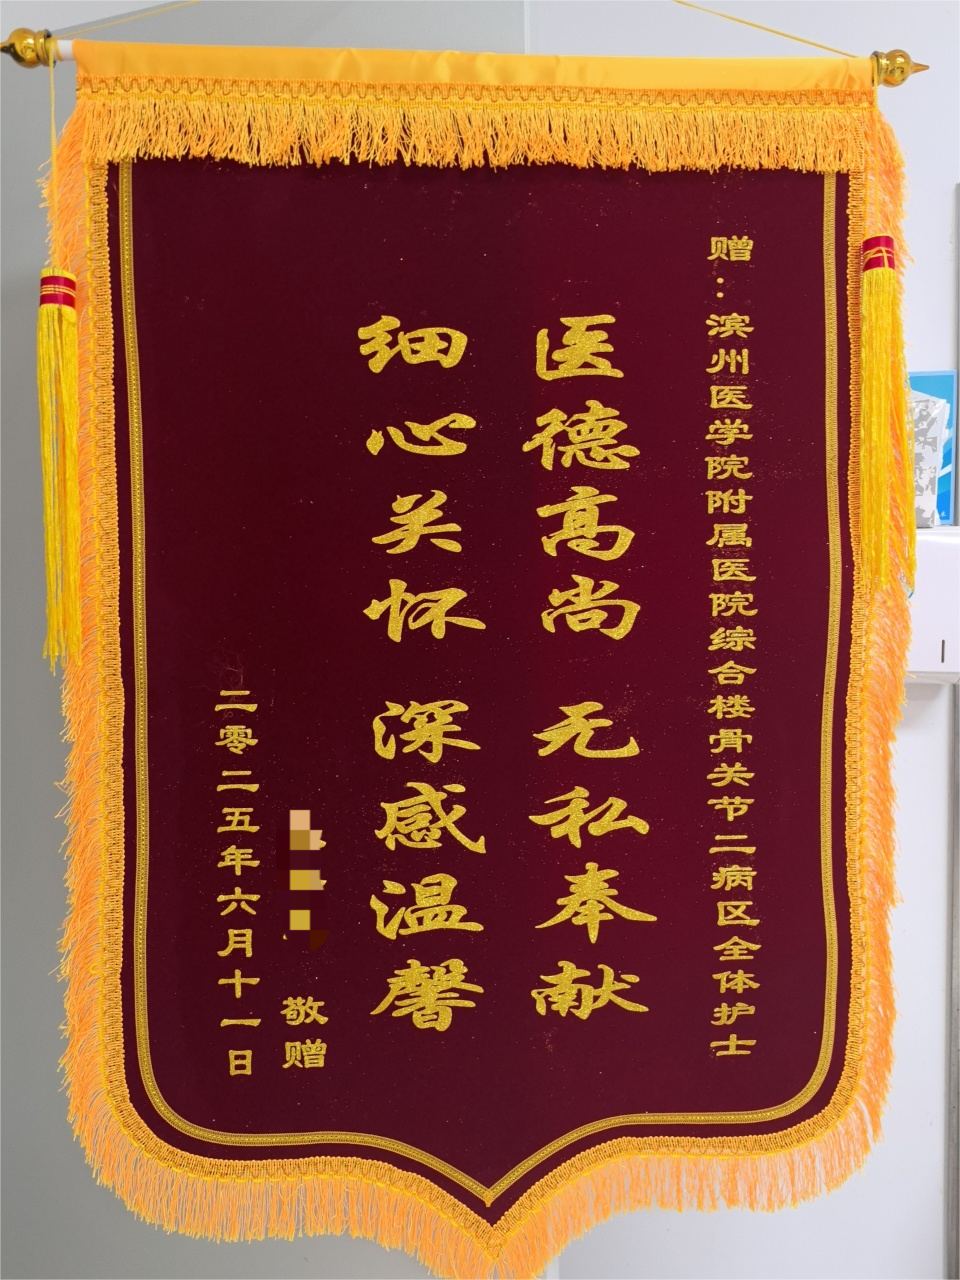 赠：滨州医学院附属医院综合楼骨关节二病区全体护士
医德高尚 无私奉献
细心关怀 深感温馨
敬赠
二零二五年六月十一日